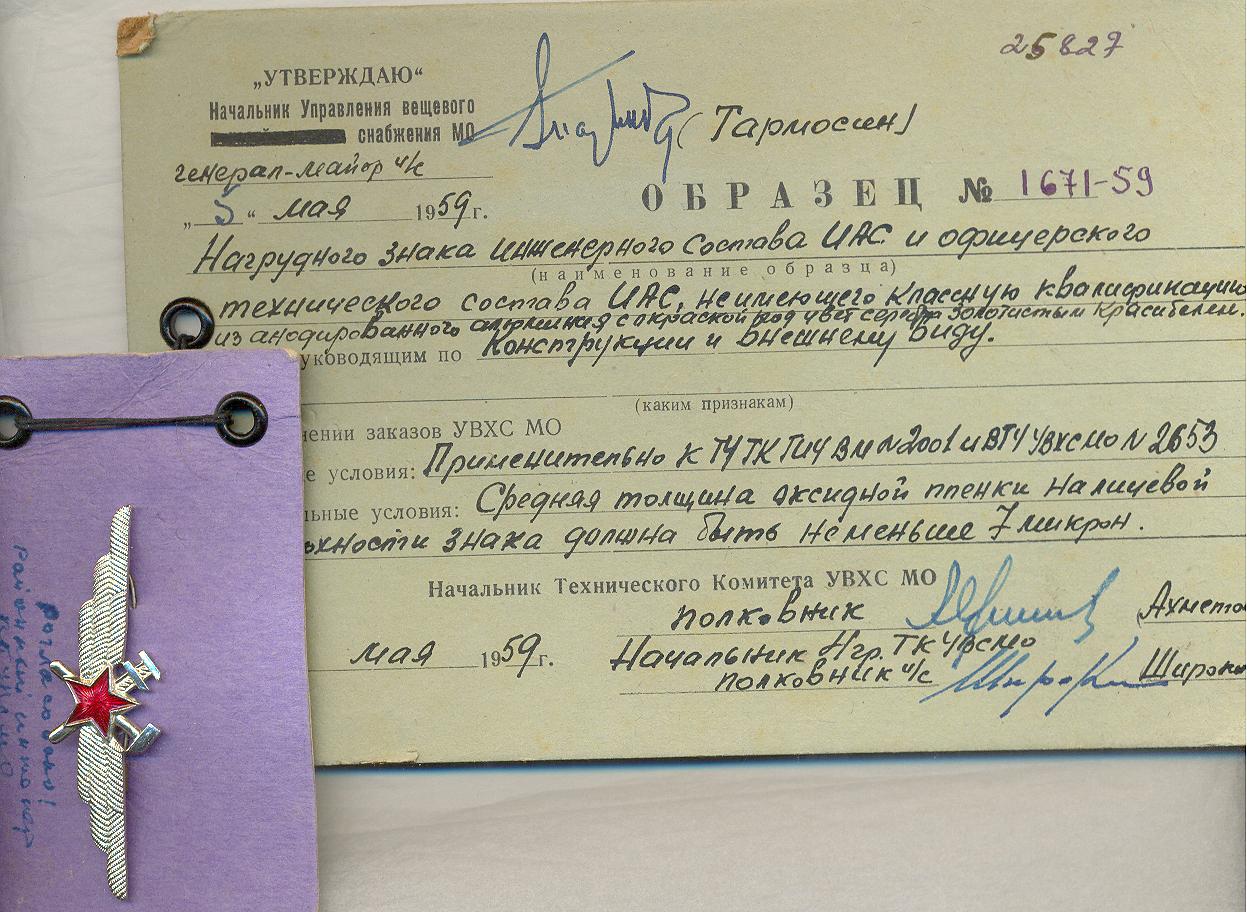 25827
„УТВЕРЖДАЮ“
Начальник Управления вещевого
снабжения МО
генерал-майор и/с (Тармосин)
„ 5 “ мая 1959 г.
ОБРАЗЕЦ № 1671-59
Нагрудного знака инженерного состава ИАС и офицерского
(наименование образца)
технического состава ИАС, не имеющего классную квалификацию
из анодированного алюминия с окраской под цвет серебр. золотистым красителем.
уководящим по конструкции и внешнему виду.
(каким признакам)
нении заказов УВХС МО
е условия: Применительно к ТУ ТК ГИУ ВМ N 2001 и ВТУ УВХС МО N 2653
льные условия: Средняя толщина оксидной пленки на лицевой
рхности знака должна быть не меньше 7 микрон.
Начальник Технического Комитета УВХС МО
полковник Ахмето
мая 1959 г.
Начальник Нгр. ТК УВСМО
полковник и/с Широко
Согласовано!
районный инженер